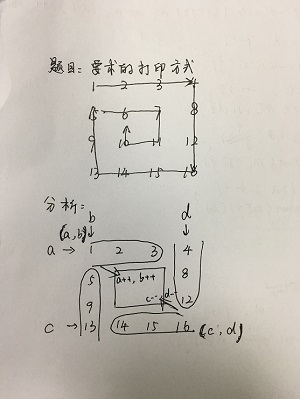 题目: 要求的打印方式
1 2 3 4
5 6 7 8
9 10 11 12
13 14 15 16
分析:
b d
(a,b)
a → 1 2 3 4
5 a++, b++ 8
9 c-- d-- 12
c → 13 14 15 16 (c, d)